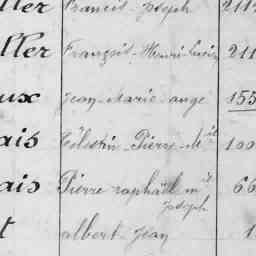 ller Francis-Joseph 211
ller François-Henri-Lucien 211
ux Jean-Marie-ange 155
ais Célestin-Pierre-Mie 100
ais Pierre raphaël m ie 66
Joseph
t albert-Jean 1